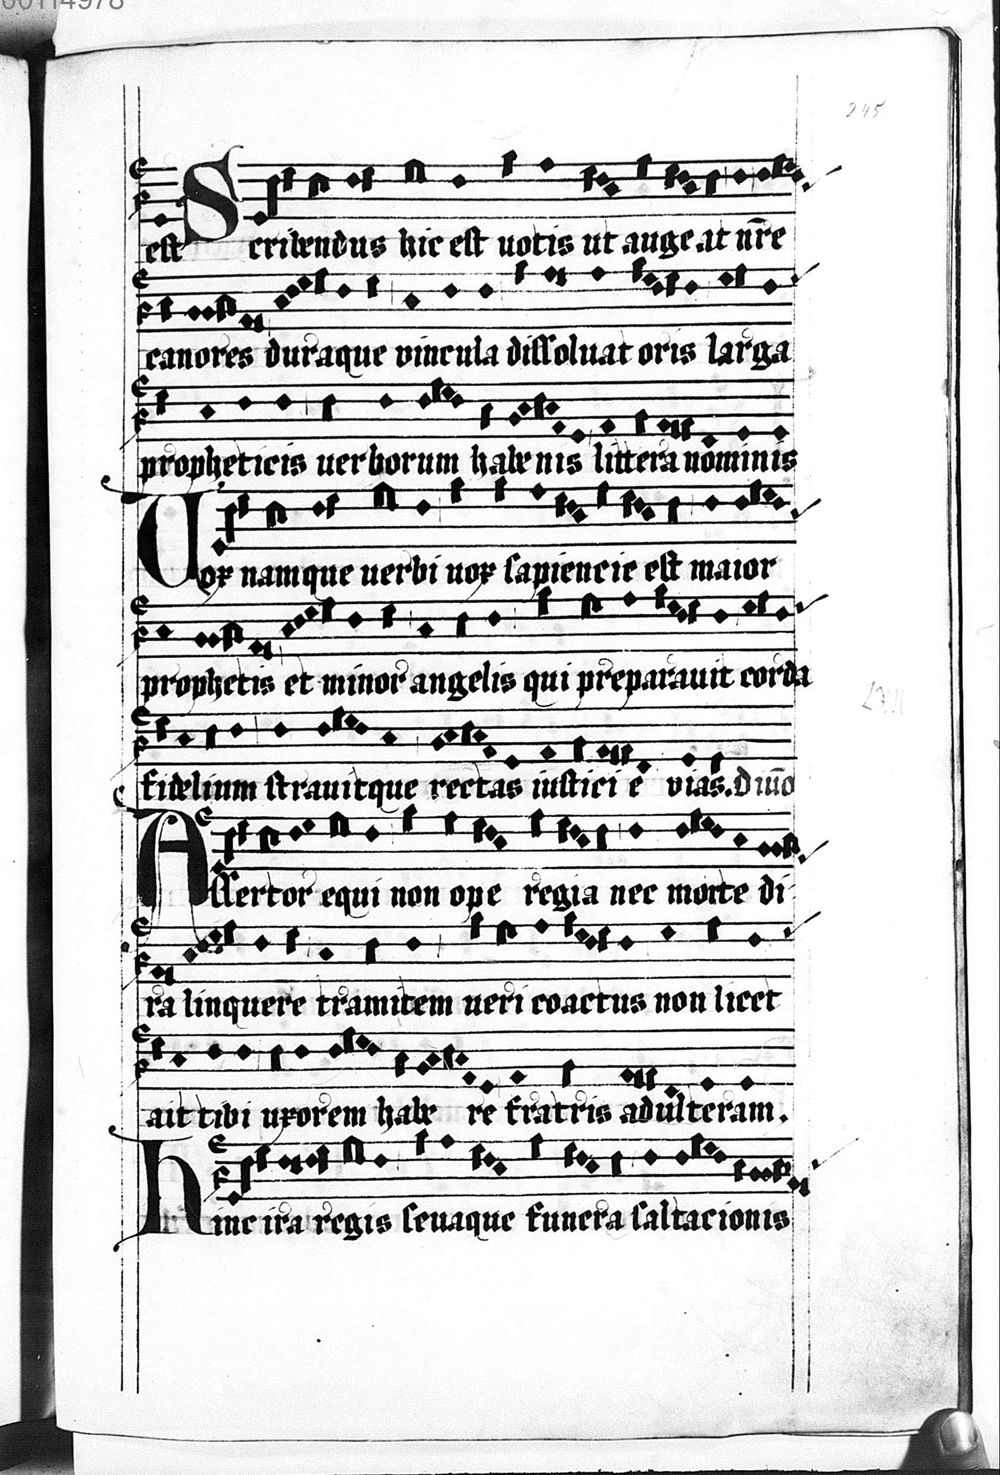 00114978
245
est Scribendus hic est uotis ut augeat nr̄e
canores duraque vincula dissoluat oris larga
propheticis uerborum habenis littera nominis
Vox namque uerbi uox sapiencie est maior
prophetis et minor angelis qui preparauit corda
fidelium strauitque rectas iusticie vias. Diuo
Assertor equi non ope regia nec morte di
ra linquere tramitem ueri coactus non licet
ait tibi uxorem habere fratris adulteram.
Hinc ira regis seuaque funera saltacionis